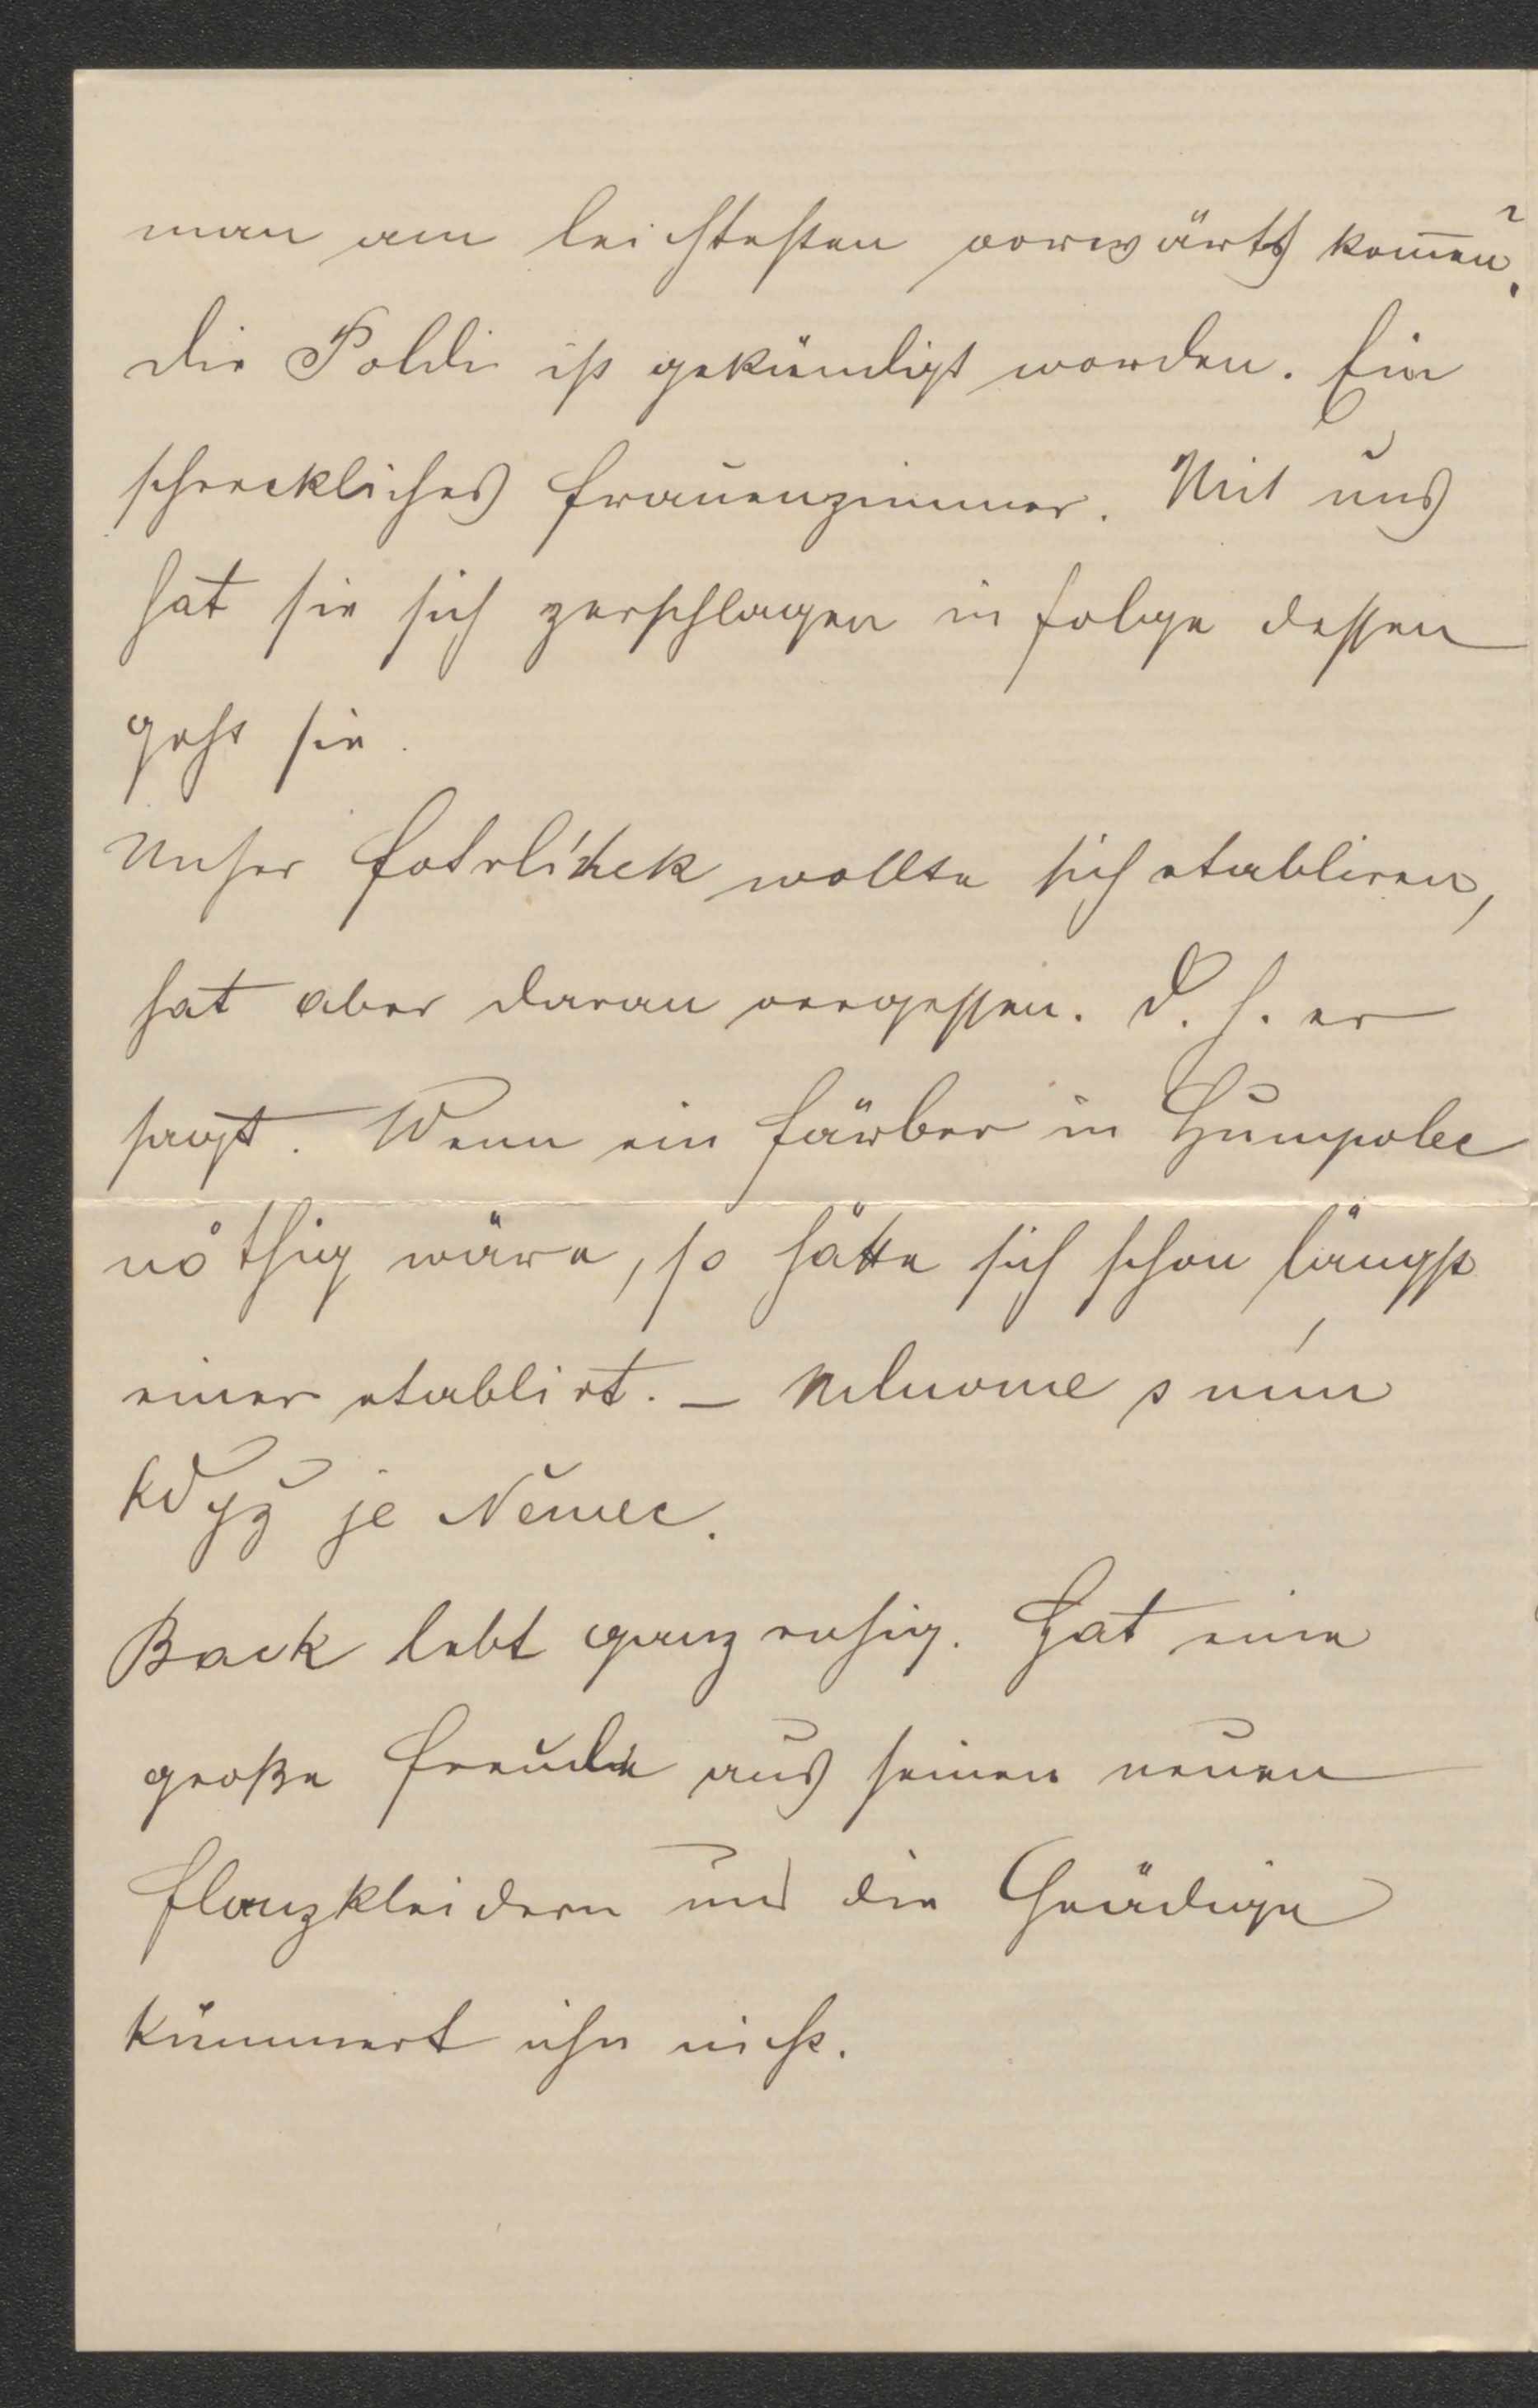 man am leichtesten vorwärts kom̅en?
die Poldi ist gekündigt worden. Ein
schreckliches Frauenzimmer. Mit uns
hat sie sich zerschlagen in folge dessen
geht sie.
Unser wollte sich etabliren,
hat aber daran vergessen. D. h. er
sagt. Wenn ein Färber in Humpolec
nöthig wäre, so hätte sich schon längst
einer etablirt. – s ním
když je Němec.
Back lebt ganz ruhig. Hat eine
große Freude aus seinen neuen
und die Gnädige
kümmert ihn nicht.